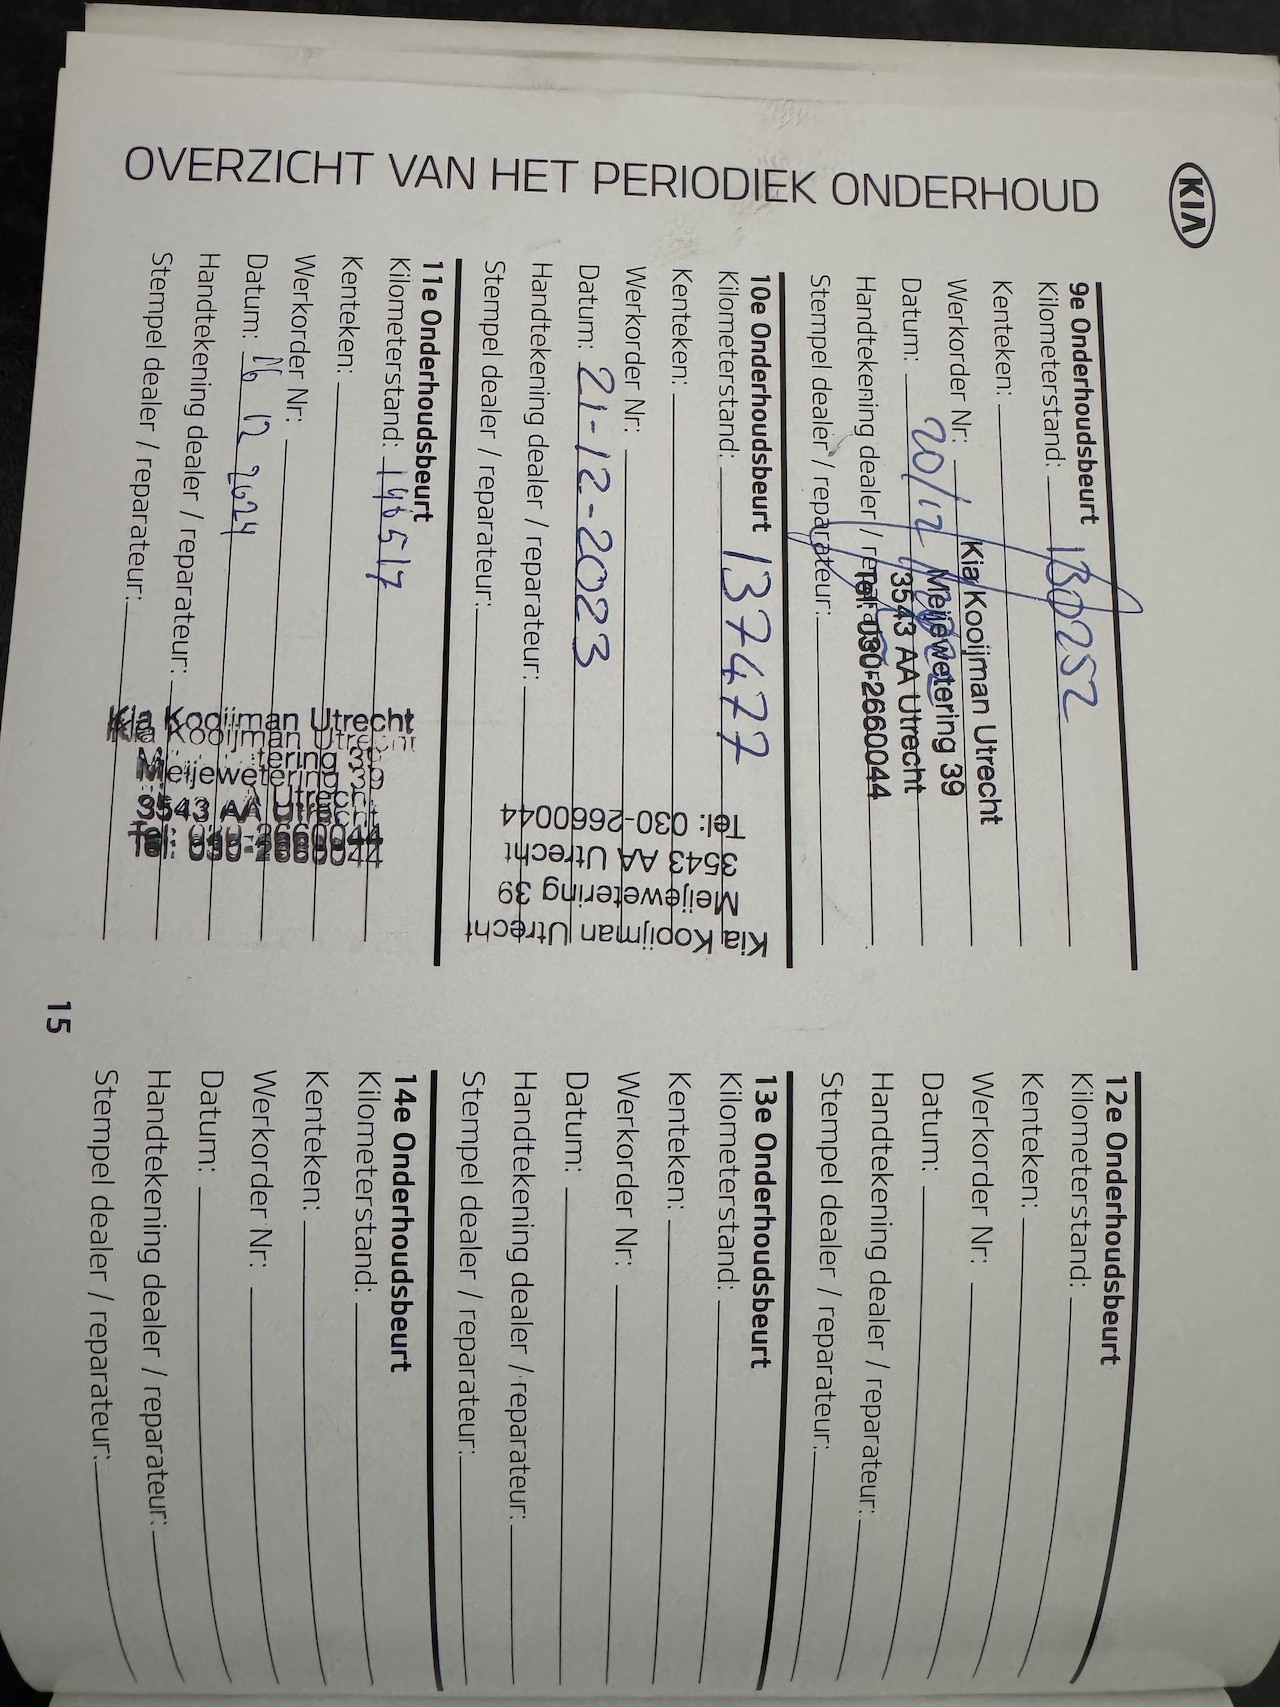 KIA
OVERZICHT VAN HET PERIODIEK ONDERHOUD
9e Onderhoudsbeurt
Kilometerstand: 130252
Kenteken:
Werkorder Nr:
Datum: 20/12
Handtekening dealer / reparateur:
Stempel dealer / reparateur:
Kia Kooijman Utrecht
Meijewetering 39
3543 AA Utrecht
Tel: 030-2660044
10e Onderhoudsbeurt
Kilometerstand: 137477
Kenteken:
Werkorder Nr:
Datum: 21-12-2023
Handtekening dealer / reparateur:
Stempel dealer / reparateur:
Kia Kooijman Utrecht
Meijewetering 39
3543 AA Utrecht
Tel.: 030-2660044
11e Onderhoudsbeurt
Kilometerstand:
Kenteken:
Werkorder Nr:
Datum: 12 2024
Handtekening dealer / reparateur:
Stempel dealer / reparateur:
Kia Kooijman Utrecht
Meijewetering 39
3543 AA Utrecht
Tel: 030-2660044
12e Onderhoudsbeurt
Kilometerstand:
Kenteken:
Werkorder Nr:
Datum:
Handtekening dealer / reparateur:
Stempel dealer / reparateur:
13e Onderhoudsbeurt
Kilometerstand:
Kenteken:
Werkorder Nr:
Datum:
Handtekening dealer / reparateur:
Stempel dealer / reparateur:
14e Onderhoudsbeurt
Kilometerstand:
Kenteken:
Werkorder Nr:
Datum:
Handtekening dealer / reparateur:
Stempel dealer / reparateur:
15